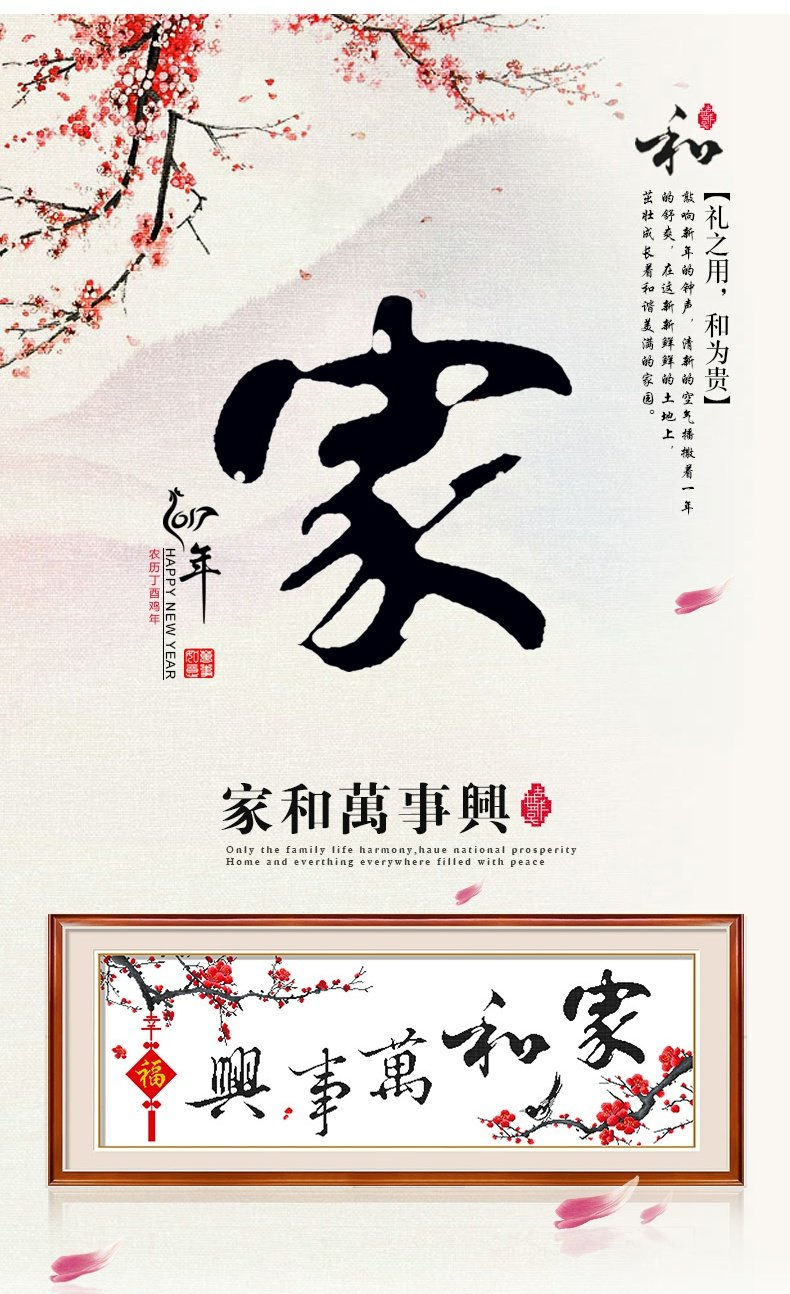 和
【礼之用，和为贵】
敲响新年的钟声，清新的空气播撒着一年
的舒爽，在这新新鲜鲜的土地上，
茁壮成长着和谐美满的家园。
家
2017
年
HAPPY NEW YEAR
农历丁酉鸡年
萬事如意
家和萬事興
Only the family life harmony,haue national prosperity
Home and everthing everywhere filled with peace
家和萬事興
幸
福